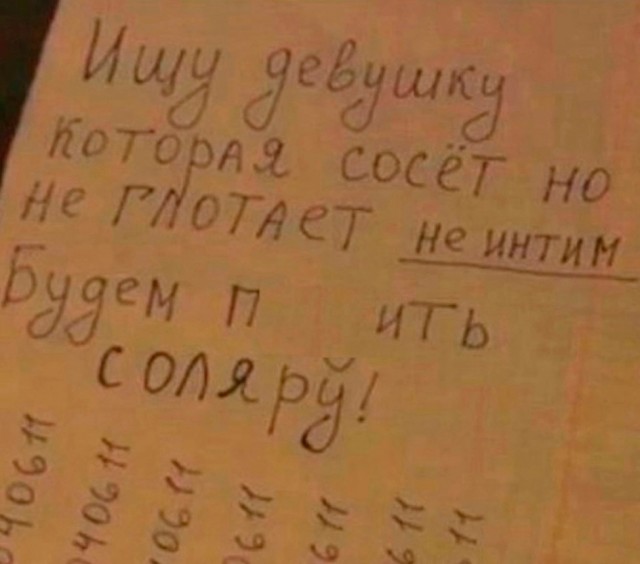 Ищу девушку
которая сосёт но
не глотает не интим
Будем п ить
соляру!
940611
940611
0611
0611
611
611
11